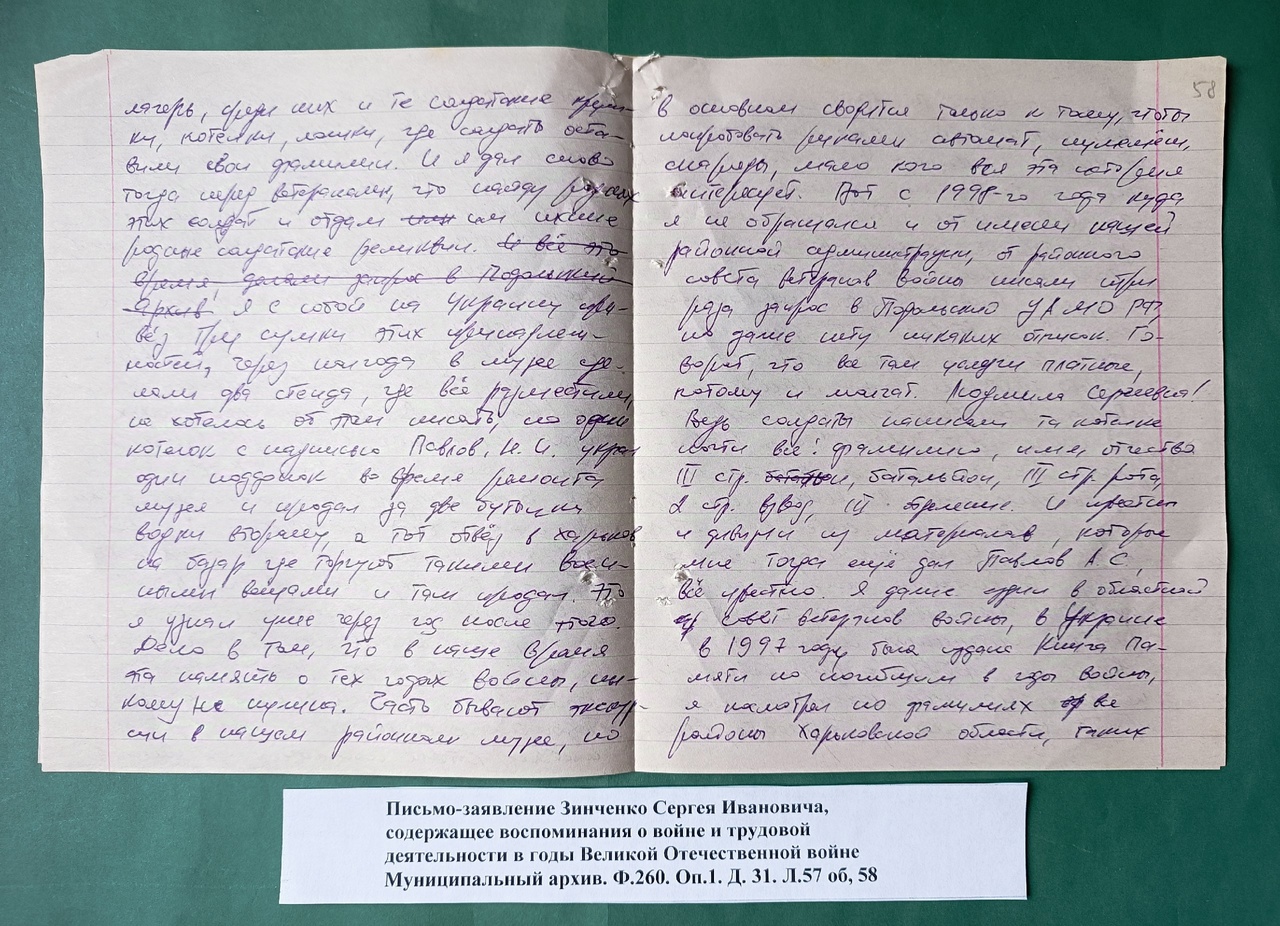 лагерь, среди них и те солдатские круж-
ки, котелки, ложки, где солдаты оста-
вили свои фамилии. И я дал слово
тогда перед ветеранами, что найду родных
этих солдат и отдам им ихние
родные солдатские реликвии. И всё это
время, делали запрос в Подольский
Архив. Я с собой на Украину при-
вёз три сумки этих принадлеж-
ностей, через полгода в музее сде-
лали два стенда, где всё разместили,
не хотелось об этом писать, но один
котелок с надписью Павлов, Н. И. украл
один подонок во время ремонта
музея и продал за две бутылки
водки второму, а тот отвёз в Харьков
на базар где торгуют такими воен-
ными вещами и там продал. Это
я узнал уже через год после этого.
Дело в том, что в наше время
эта память о тех годах войны, ни-
кому не нужна. Часто бывают экскур-
сии в нашем районном музее, но
58
в основном сводятся только к тому, чтобы
попробовать руками автомат, пулемёт,
снаряды, мало кого вся эта история
интересует. Вот с 1998-го года куда
я не обращался и от имени нашей
районной администрации, от районного
совета ветеранов войны писали три
раза запрос в Подольский ЦАМО РФ
но даже нету никаких отписок. Го-
ворят, что все там услуги платные,
потому и молчат. Людмила Сергеевна!
Ведь солдаты написали на котелке
почти всё: фамилию, имя, отчество
III стр. батальон, III стр. рота
2 стр. взвод, III отделение. И
и дивизии из материалов, которые
мне тогда ещё дал Павлов А. С.
всё известно. Я даже ездил в областной
совет ветеранов войны, в Украине
в 1997 году была издана Книга Па-
мяти по погибшим в годы войны,
я посмотрел по фамилиях все
районы Харьковской области, таких
Письмо-заявление Зинченко Сергея Ивановича,
содержащее воспоминания о войне и трудовой
деятельности в годы Великой Отечественной войне
Муниципальный архив. Ф.260. Оп.1. Д. 31. Л.57 об, 58